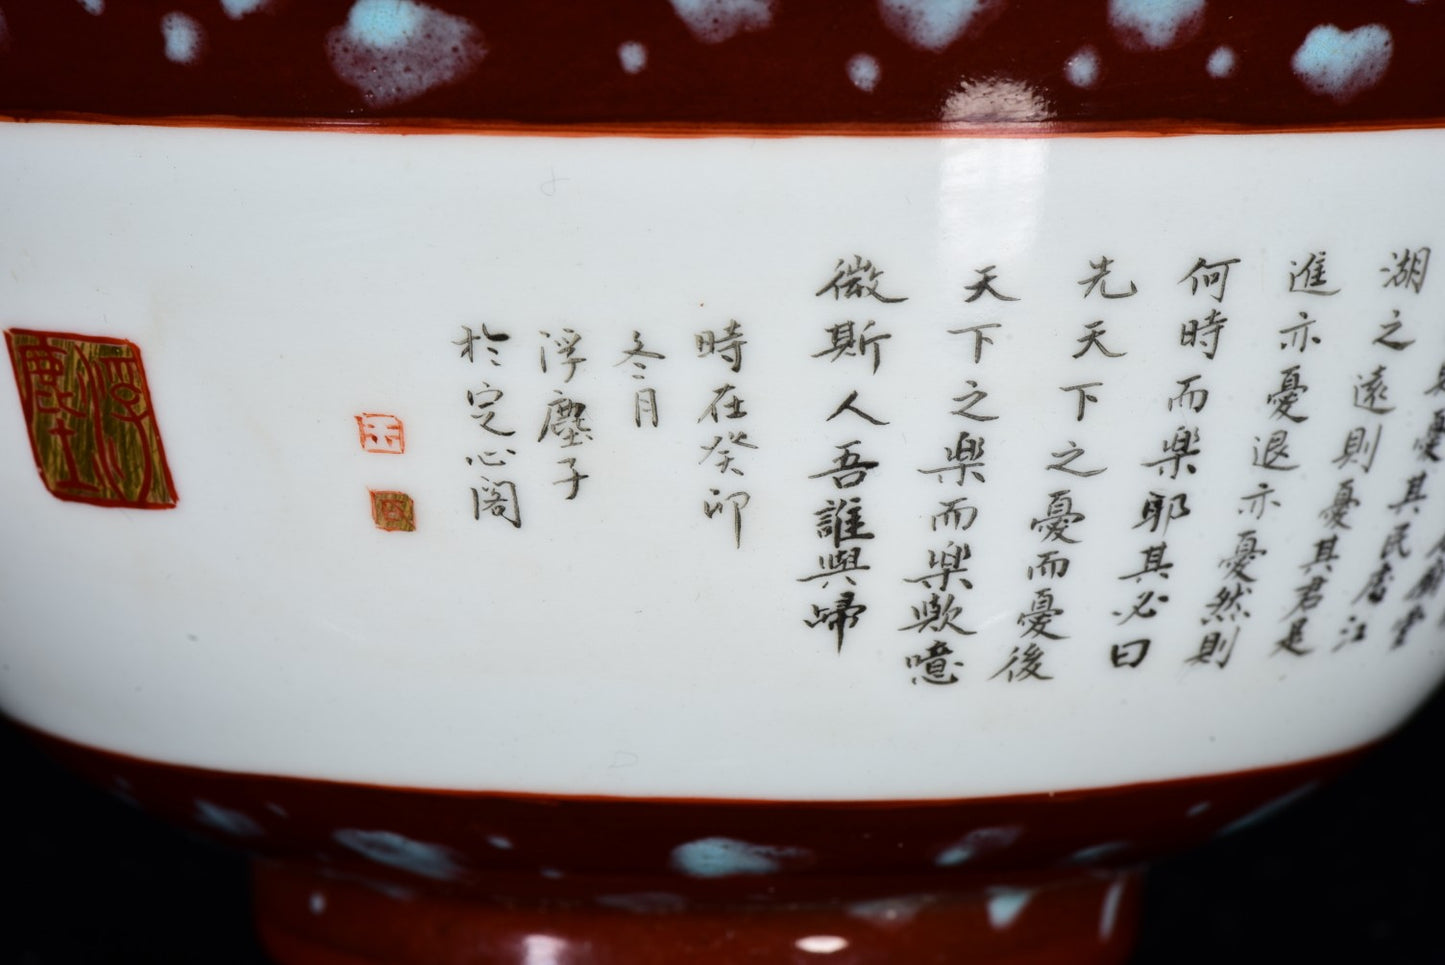 廟堂
憂其民處江
湖之遠則憂其君是
進亦憂退亦憂然則
何時而樂耶其必曰
先天下之憂而憂後
天下之樂而樂歟噫
微斯人吾誰與歸
時在癸卯
冬月
浮塵子
於定心閣
浮塵